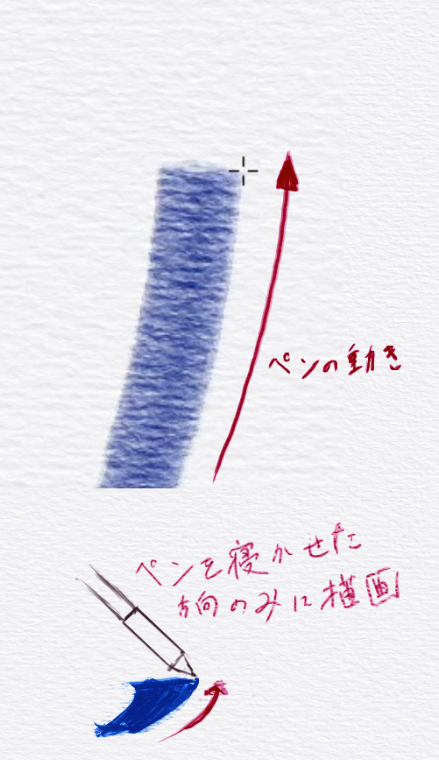 ペンの動き
ペンを寝かせた
方向のみに描画